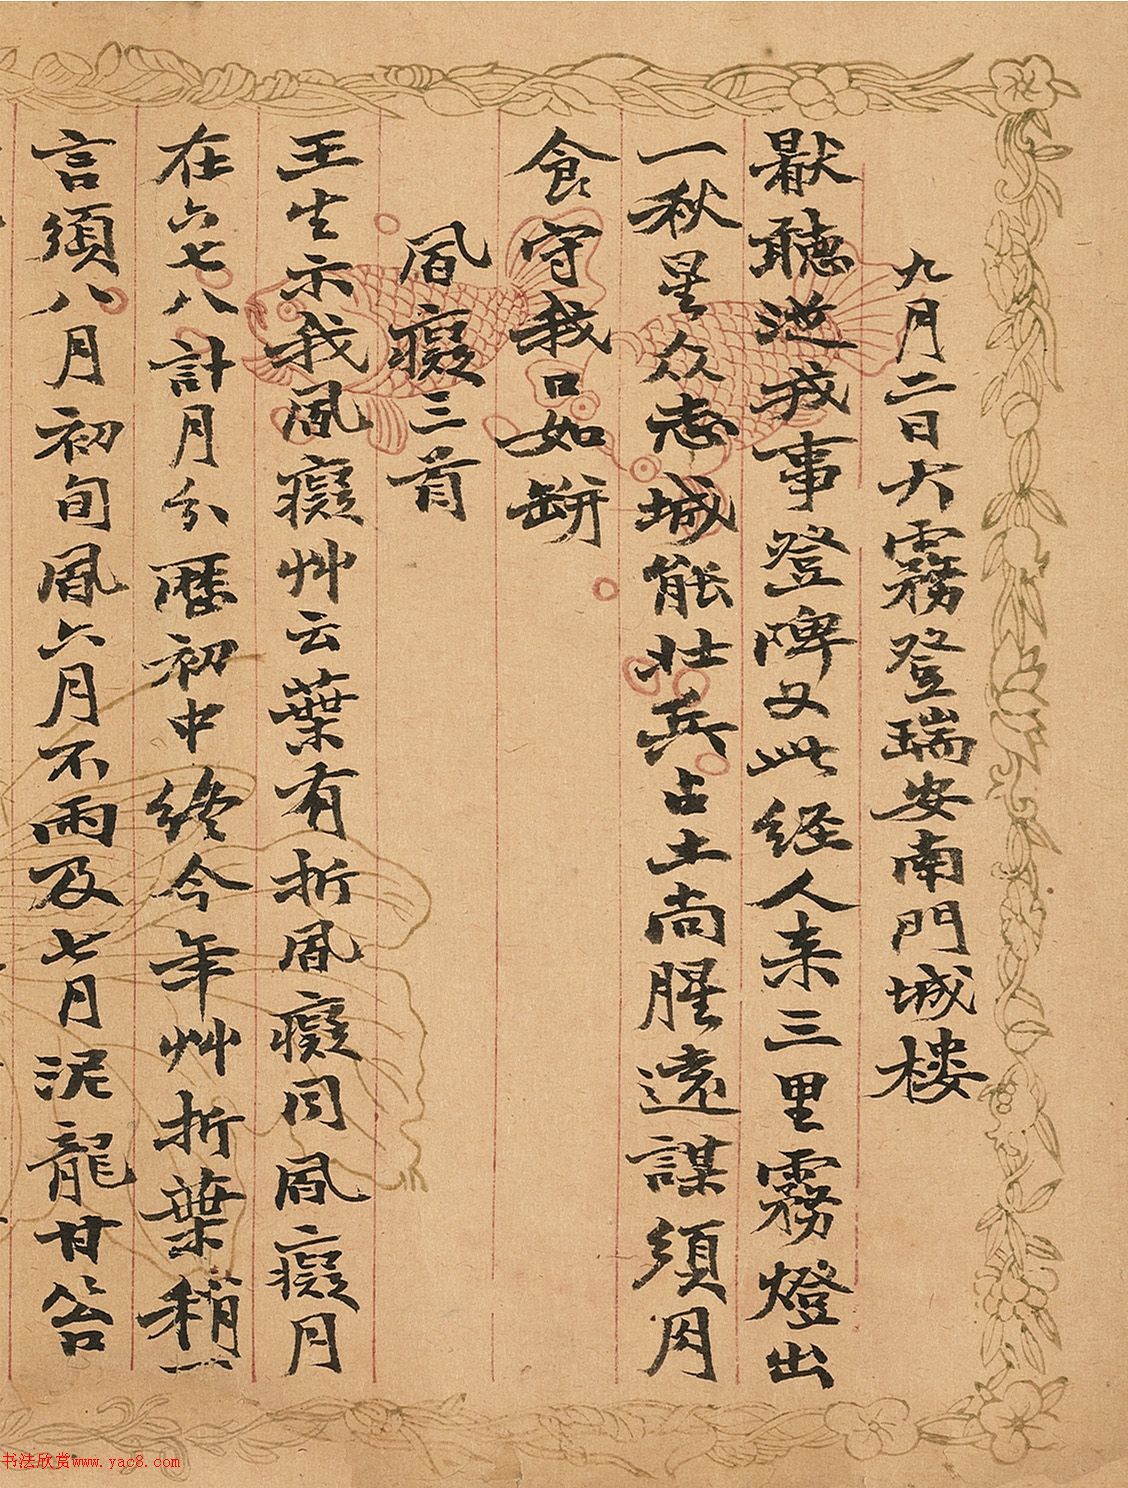 九月二日大霧登瑞安南門城楼
厭聽泄我事登陴又此経人来三里霧燈出
一秋星众志城能壮兵占土尚腥遠謀須肉
食守我口如缾
風癡三首
王生示我風癡艸云葉有折風癡同風癡月
在六七八計月分曆初中終今年艸折葉稍一
言須八月初旬風六月不雨及七月泥龍甘答
书法欣赏www.yac8.com